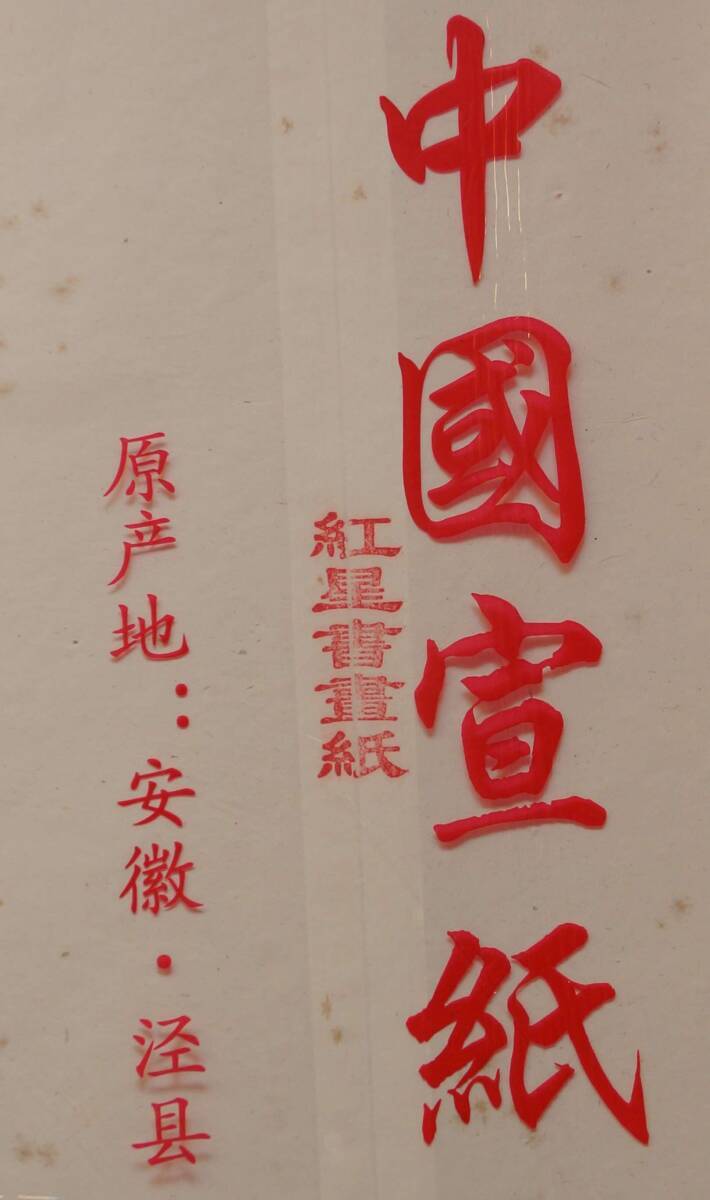 中國宣紙
紅星書畫紙
原产地：安徽·泾县